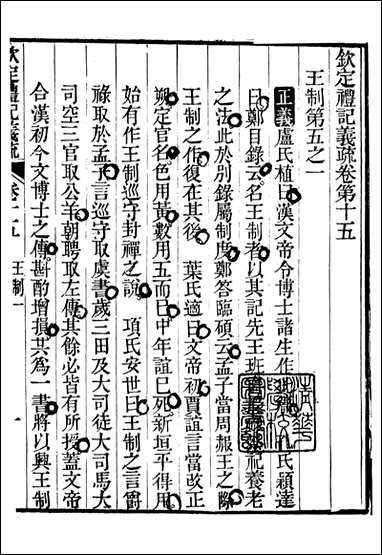 欽定禮記義疏卷第十五
王制第五之一
正義盧氏植曰漢文帝令博士諸生作 氏穎達
曰鄭目錄云名王制者以其記先王班 祀養老
之法此於別錄屬制度鄭答臨碩云孟子當周赧王之際
王制之作復在其後 葉氏適曰文帝初賈誼言當改正
朔定官名色用黃數用五而巳中年誼巳死新垣平得用
始有作王制巡守封禪之說 項氏安世曰王制之言爵
祿取於孟子言巡守取虞書歲三田及大司徒大司馬大
司空三官取公羊朝聘取左傳其餘必皆有所授蓋文帝
合漢初今文博士之傳斟酌增損其為一書將以興王制
欽定禮記義疏 卷十五 王制一 一